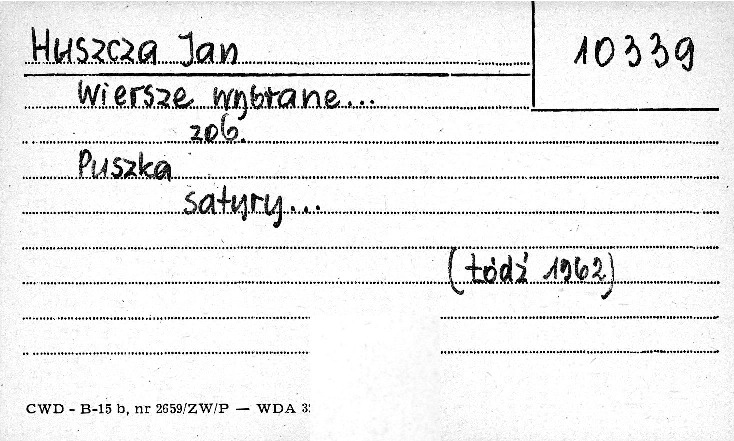 Huszcza Jan
10339
Wiersze wybrane...
zob.
Puszka
satyry...
(Łódź 1962)
CWD - B-15 b, nr 2659/ZW/P — WDA